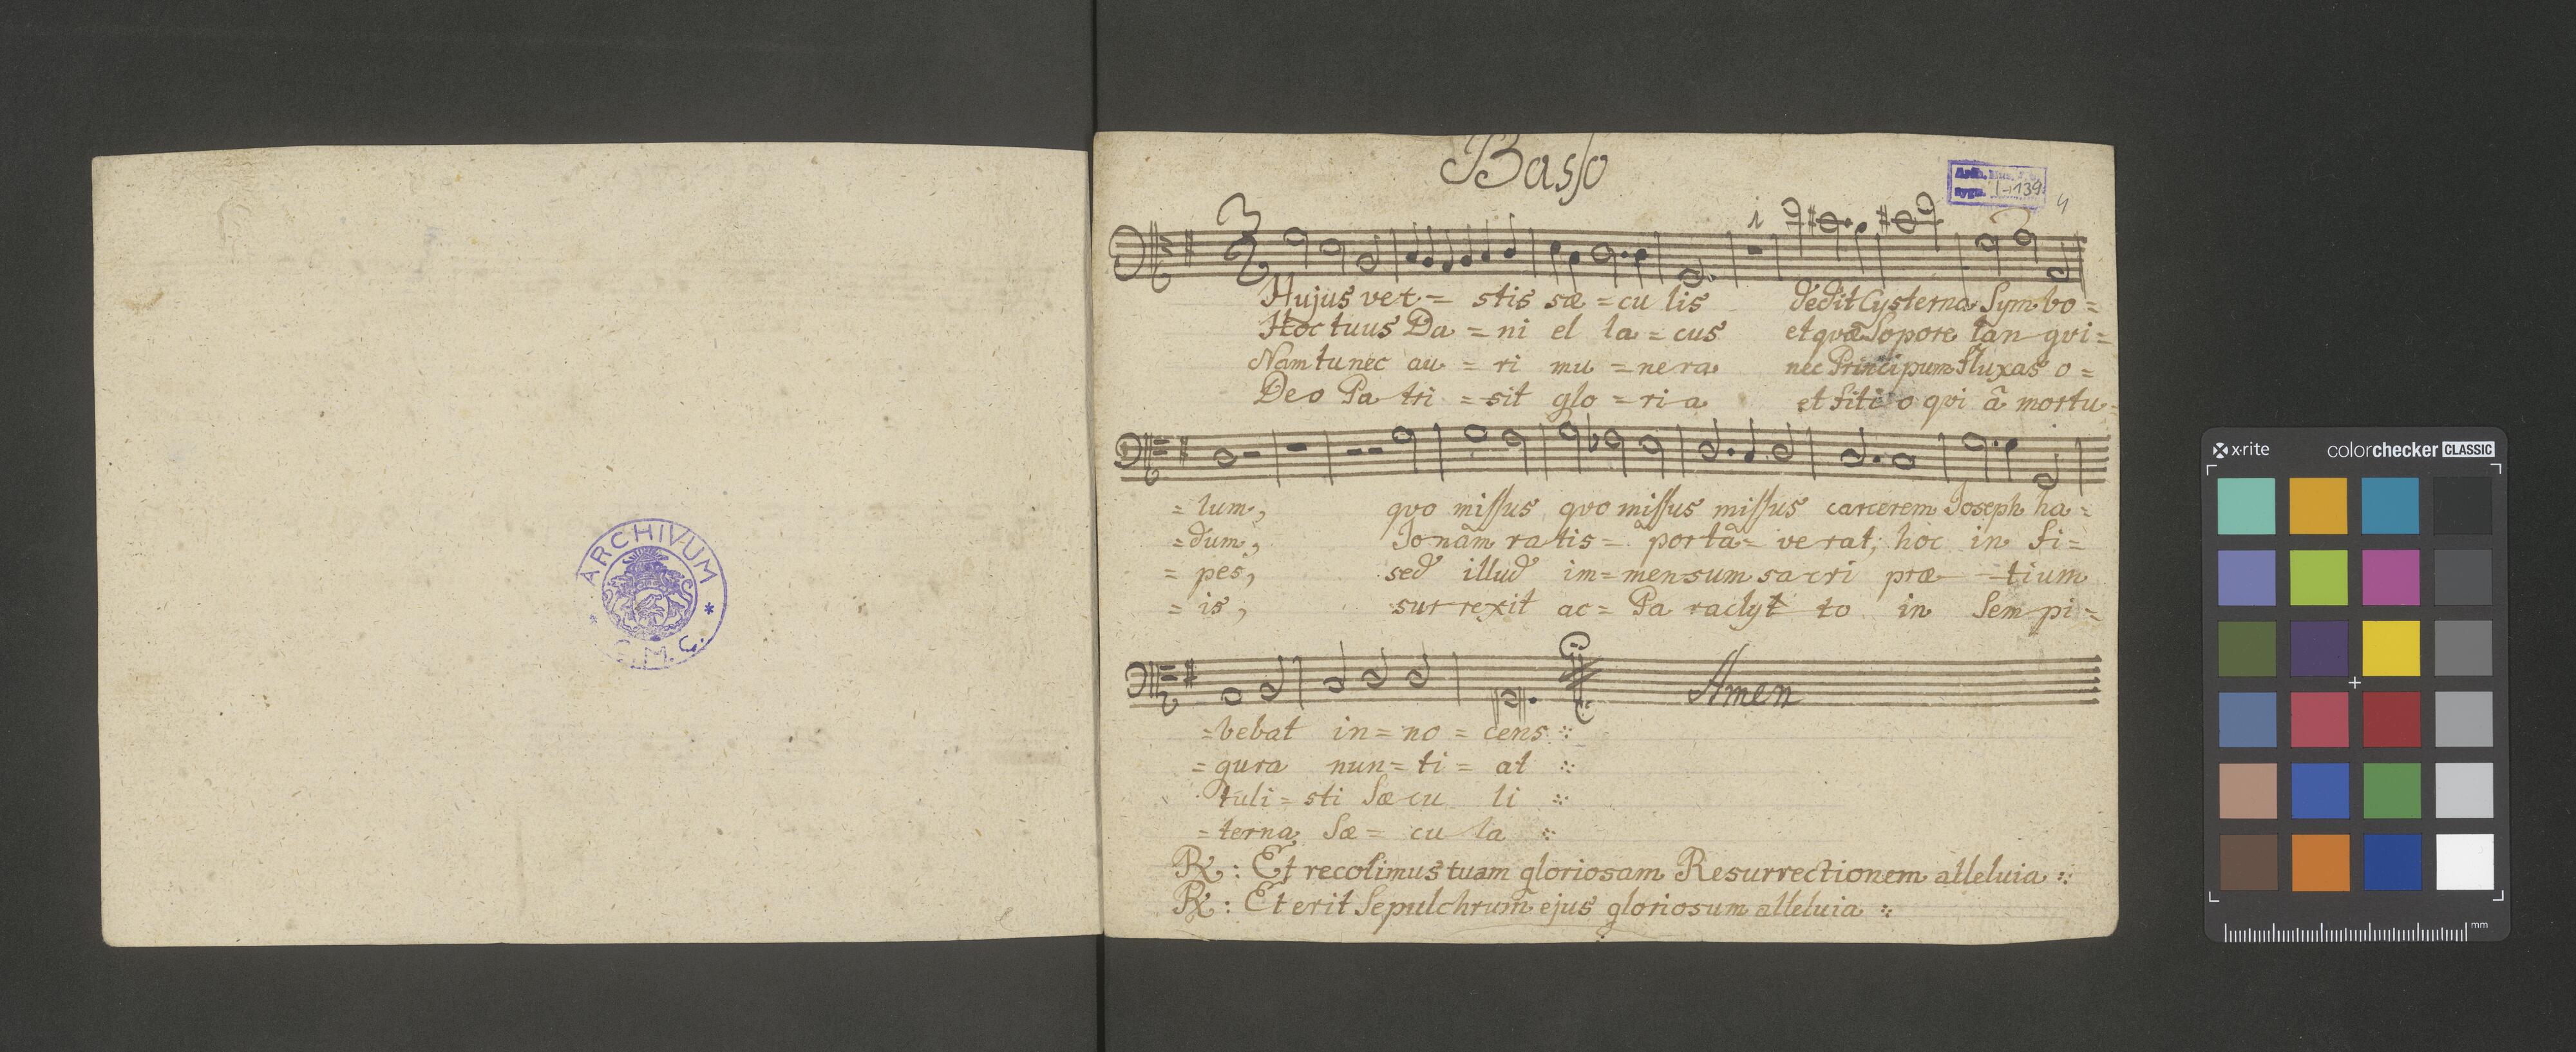 ARCHIVUM
Basso
I-139
4
Hujus vet = stis sæ = cu lis dedit Cysterna Sym bo =
Hoc tuus Da = ni el la = cus et quæ Sopore lan gvi =
Nam tu nec au = ri mu = nera nec Principum fluxas o =
Deo Pa tri = sit glo = ri a et fili o qvi â mortu =
= lum, qvo missus qvo missus missus carcerem Joseph ha =
= dum, Jonam ratis = portâ = verat; hoc in fi =
= pes, sed illud im = mensum sacri præ - tium
= is, sur rexit ac = Pa raclyt to in Sem pi =
= bebat in = no = cens :
= gura nun = ti = at :
tuli = sti Sæ cu li :
= terna Sæ = cu la :
Amen
R: Et recolimus tuam gloriosam Resurrectionem alleluia :
R: Et erit Sepulchrum ejus gloriosum alleluia :
x-rite
colorchecker CLASSIC
mm